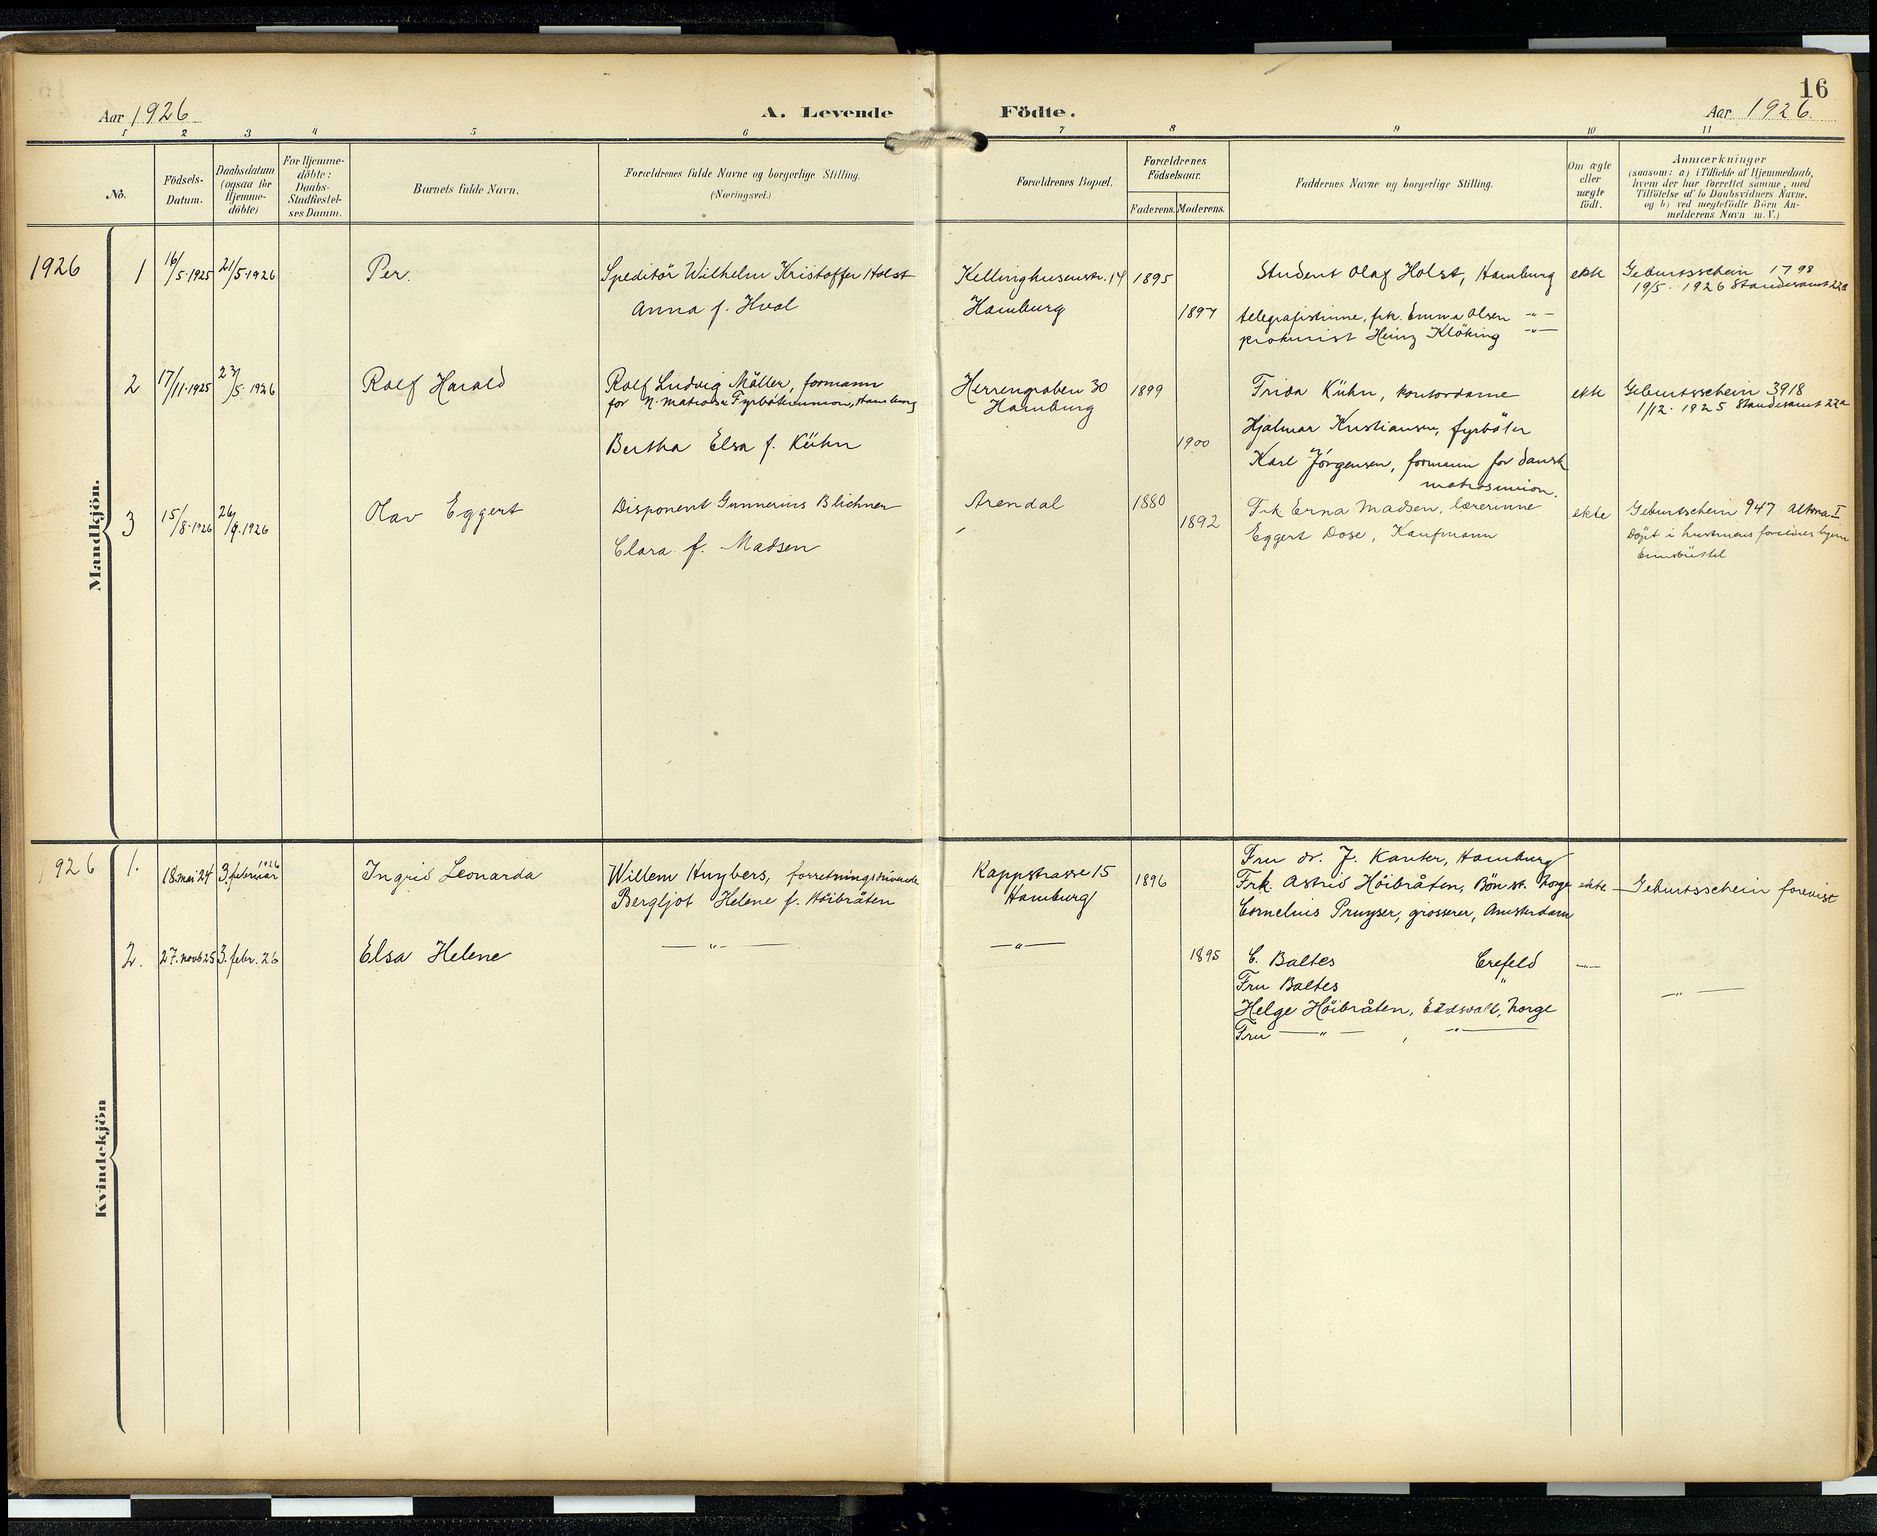 16
Aar 1926
A. Levende Födte.
Aar 1926.
1 2 3 4 5 6 7 8 9 10 11
No.
Födsels-
Datum.
Daabsdatum
(ogsaa for
Hjemme-
döbte)
For Hjemme-
döbte:
Daabs-
Stadfæstel-
ses Datum.
Barnets fulde Navn.
Forældrenes fulde Navne og borgerlige Stilling.
(Næringsvei.)
Forældrenes Bopæl.
Forældrenes
Födselsaar.
Faderens. Moderens.
Faddernes Navne og borgerlige Stilling.
Om ægte
eller
uægte
födt.
Anmærkninger
(saasom: a) i Tilfælde af Hjemmedaab,
hvem der har forrettet samme, med
Tilföielse af to Daabsvidners Navne.
og b) ved uægtefödte Börn An-
melderens Navn m. V.)
Mandkjön.
1926
1
16/5·1925
21/5·1926
Per.
Speditör Wilhelm Kristoffer Holst
Anna f. Hval
Kellinghusenstr. 14
Hamburg
1895
1897
Student Olaf Holst, Hamburg
telegrafistinne, frk. Emma Olsen –"–
prokurist Heinz Klöking –"–
ekte
Geburtsschein 1798
19/5· 1926 Standesamt 22a
2
17/11·1925
23/5·1926
Rolf Harald
Rolf Ludvig Möller, formann
for N. Matros& Fyrböterunion, Hamburg
Bertha Elsa f. Kühn
Herrengraben 30
Hamburg
1899
1900
Frida Kühn, kontordame
Hjalmar Kristiansen, fyrböter
Karl Jörgensen, formann for dansk
matrosunion.
ekte
Geburtsschein 3918
1/12· 1925 Standesamt 22a
3
15/8·1926
26/9·1926
Olav Eggert
Disponent Gunnerius Blichner
Clara f. Madsen
Arendal
1880
1892
Frk Erna Madsen, lærerinne
Eggert Dose, Kaufmann
ekte
Geburtschein 947 Altona I
Döpt i hustruens foreldres hjem
Eimsbüttel
Kvindekjön
1926
1.
18 mai 24
3. februar 1926
Ingrid Leonarda
Willem Huybers, forretningsdrivende
Bergljot Helene f. Höibråten
Rappstrasse 15
Hamburg
1896
Fru dr. J. Kanter, Hamburg
Frk. Astrid Höibråten, Bön st. Norge
Cornelius Pruyser, grosserer, Amsterdam
ekte
Geburtsschein forevist
2.
27. novb 25
3. febr. 26
Elsa Helene
— " —
— " —
1895
C. Baltes Crefeld
Fru Baltes "
Helge Höibråten, Eidsvoll, Norge
Fru — " — , — " —
— " —
— " —